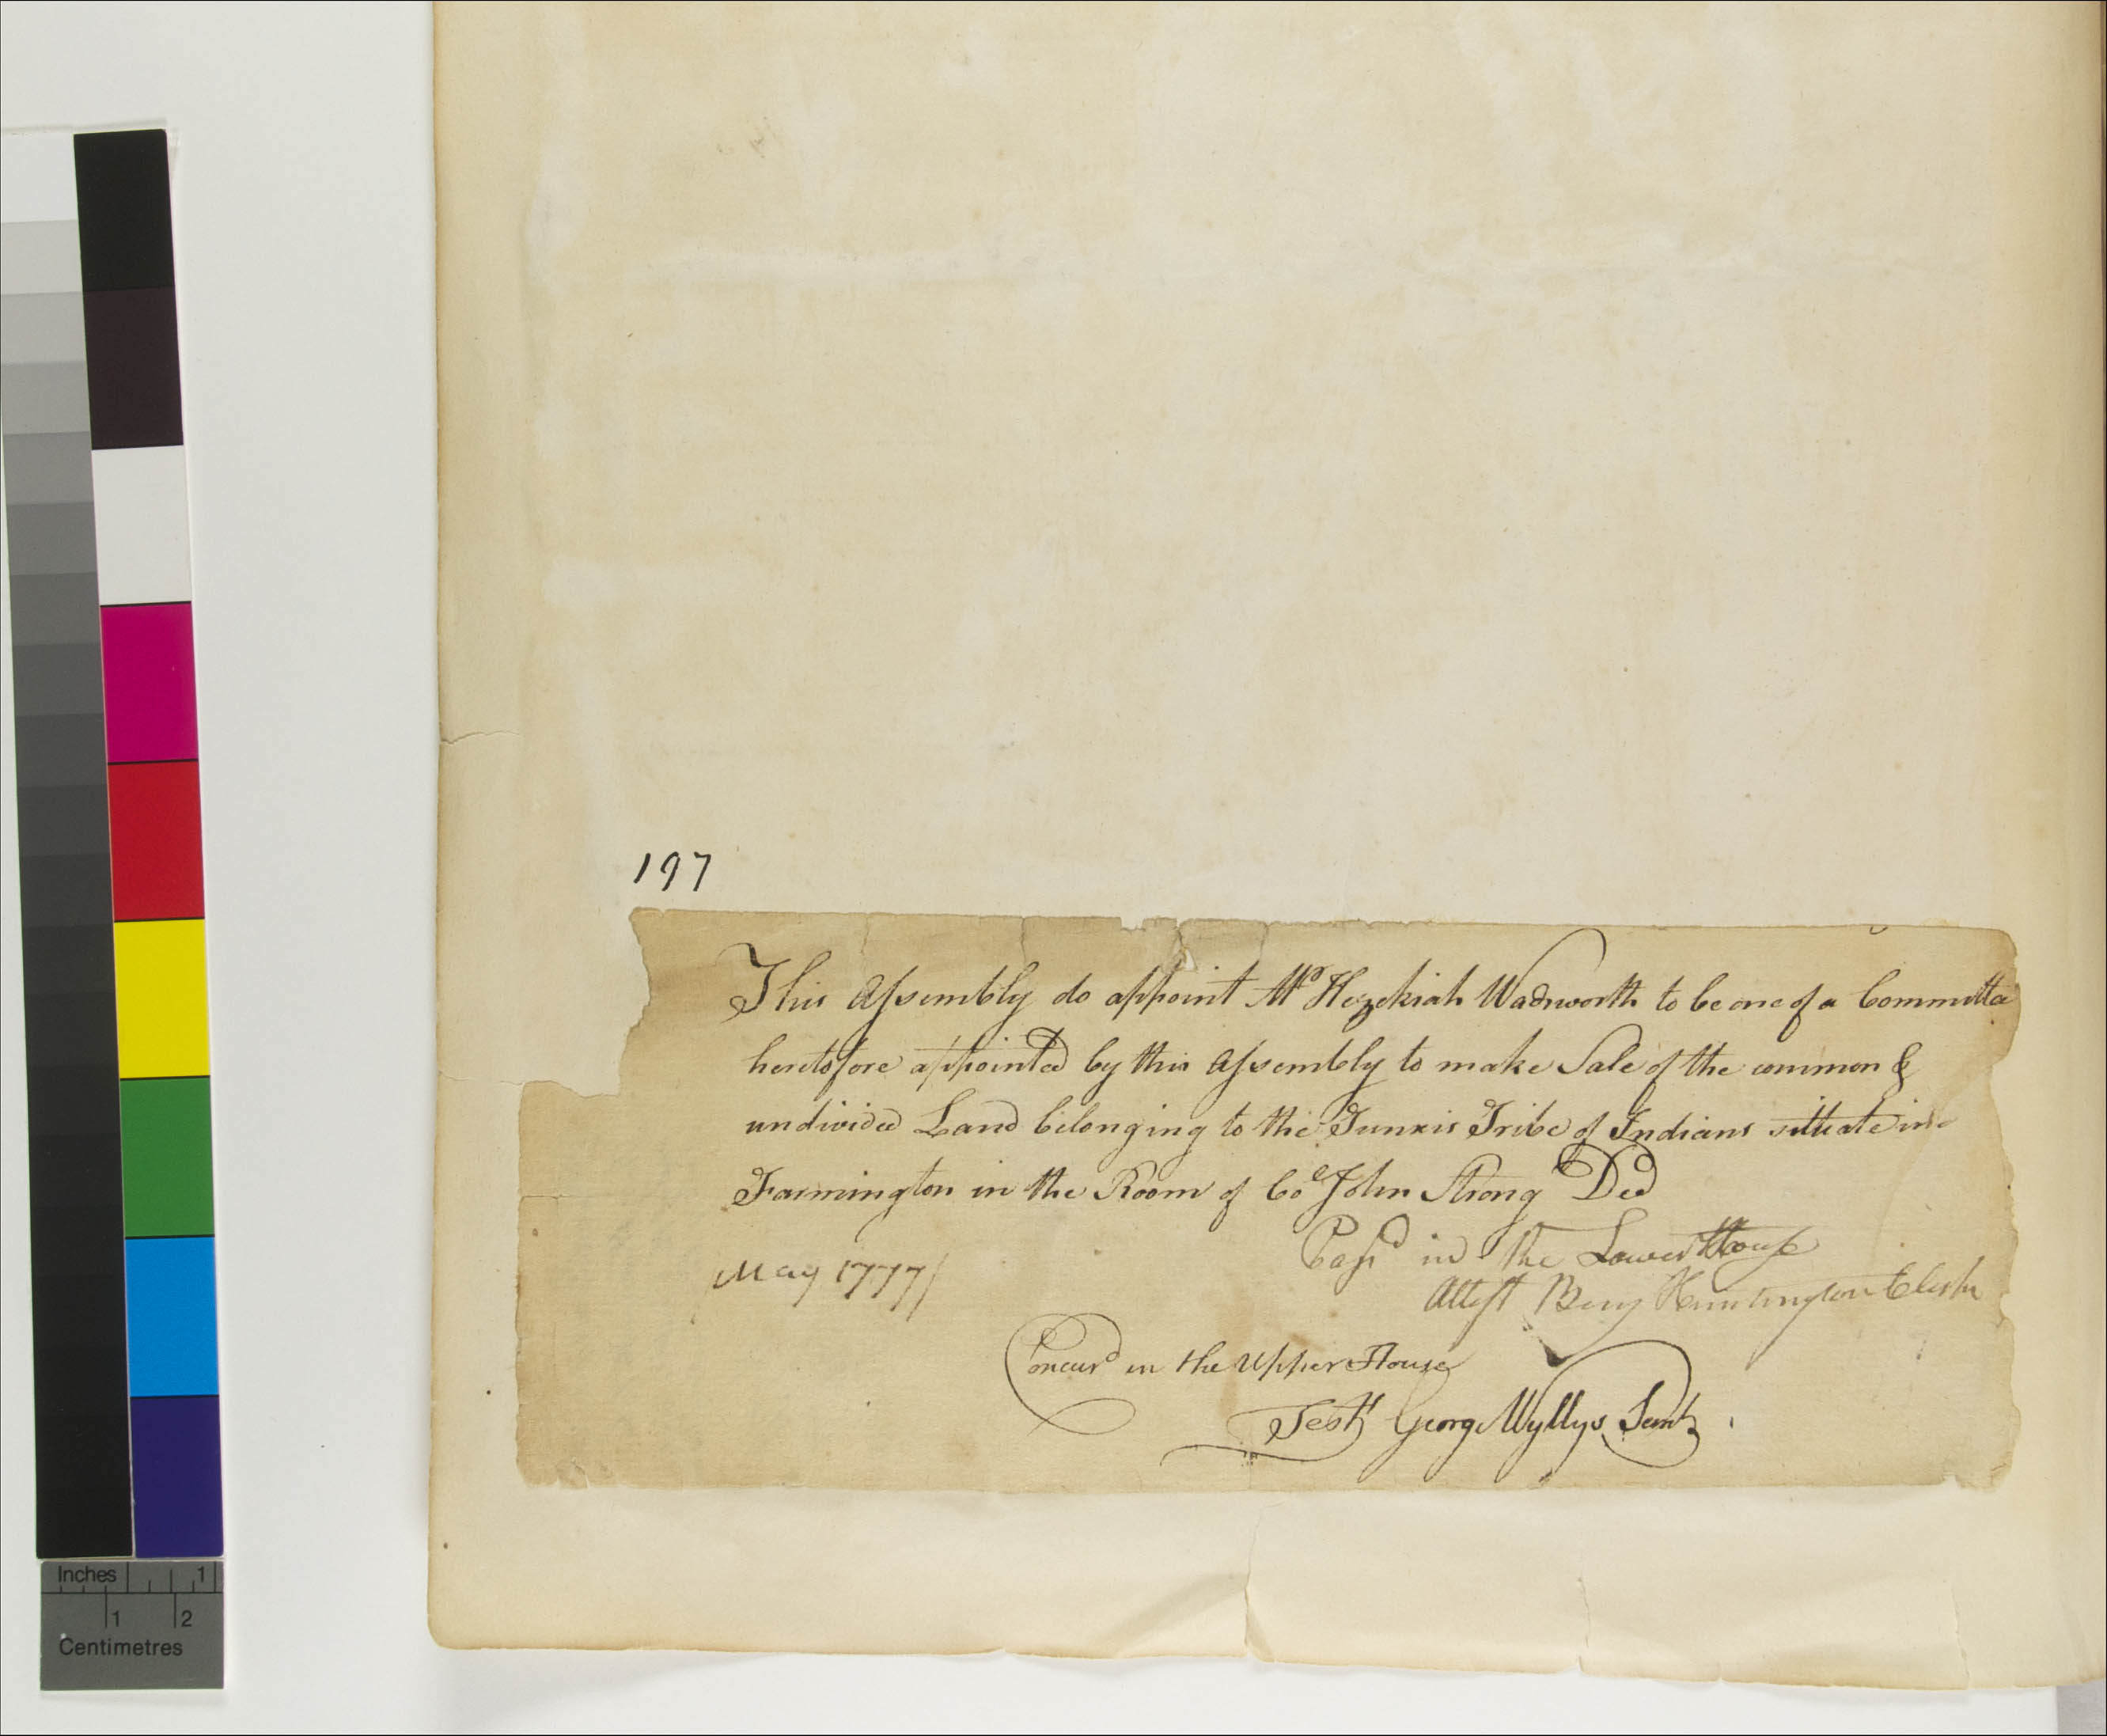 197
This Assembly do appoint Mr Hezekiah Wadsworth to be one of a Committee
heretofore appointed by this Assembly to make Sale of the common &
undivided Land belonging to the Tunxis Tribe of Indians situate in
Farmington in the Room of Col John Strong Decd
Passd in the Lower House
May 1777
Attest Benj Huntington Clerk
Concurd in the Upper House
Test George Wyllys Secretry
Inches 1
1 2
Centimetres